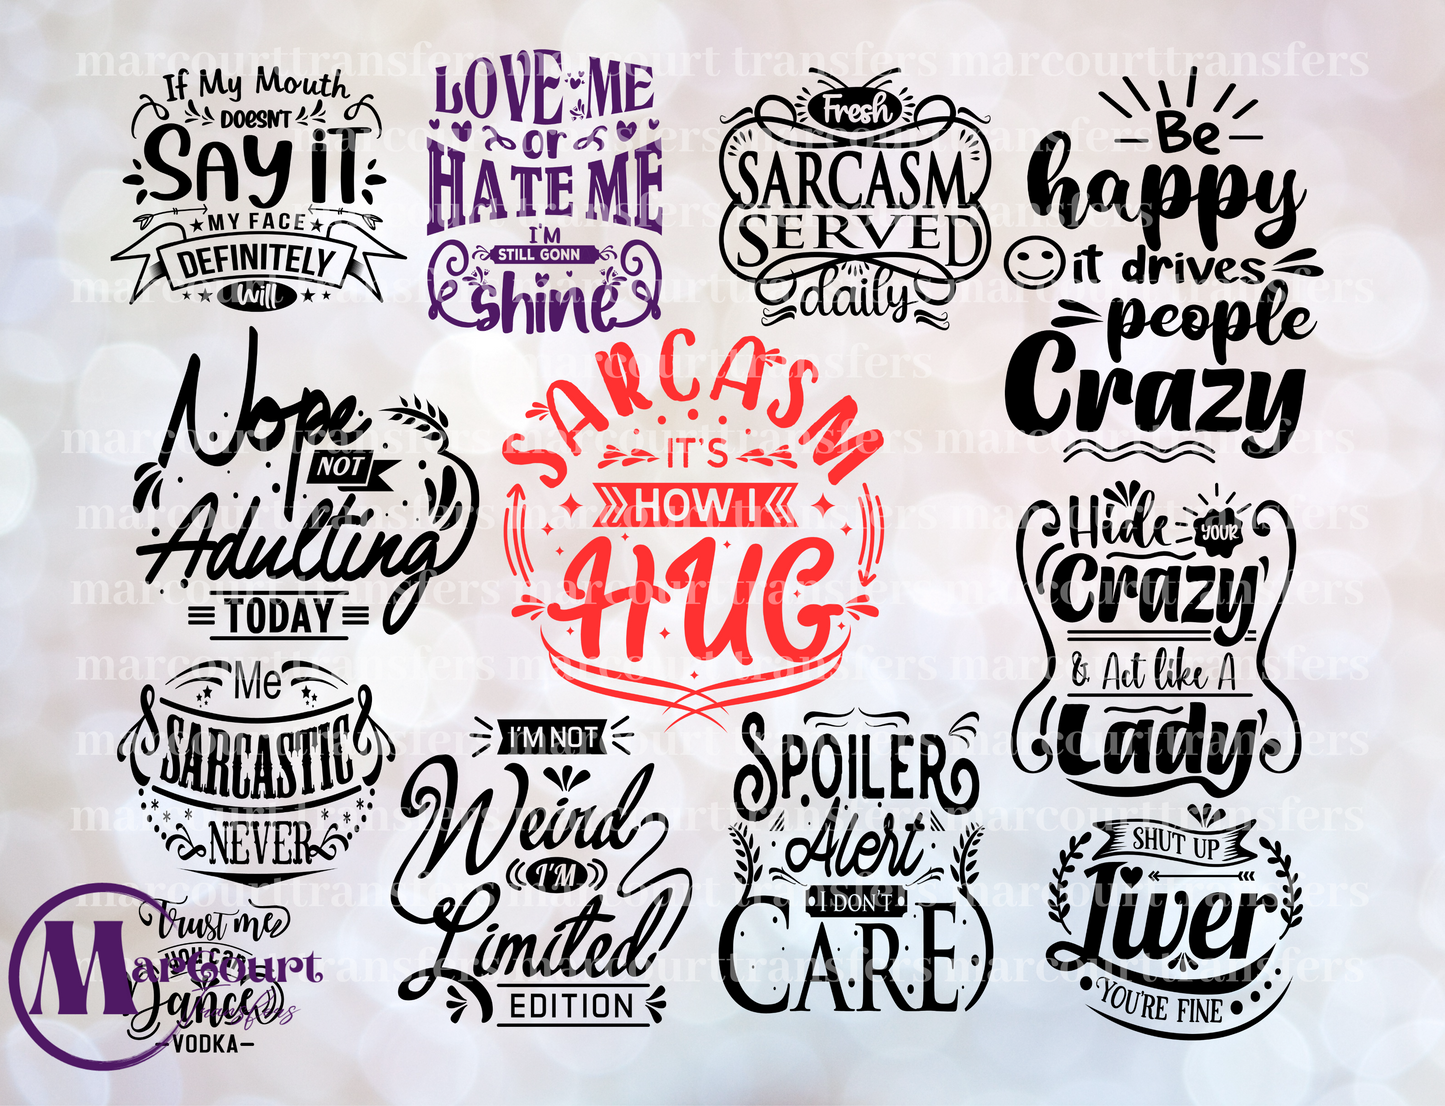 marcourttransfers marcourt transfers marcourttransfers
If My Mouth
DOESN'T
SAY iT
MY FACE
DEFINITELY
Will
LOVE ME
or
HATE ME
I'M
STILL GONN
shine
Fresh
SARCASM
SERVED
daily
Be
happy
it drives
people
Crazy
Nope
NOT
Adulting
TODAY
SARCASM
IT'S
HOW I
HUG
Hide YOUR
Crazy
& Act like A
Lady
Me
SARCASTIC
NEVER
I'M NOT
Weird
I'M
Limited
EDITION
SPOILER
Alert
I DON'T
CARE
SHUT UP
Liver
YOU'RE FINE
Trust me
YOU CAN
Dance
-VODKA-
M
Marcourt
Transfers